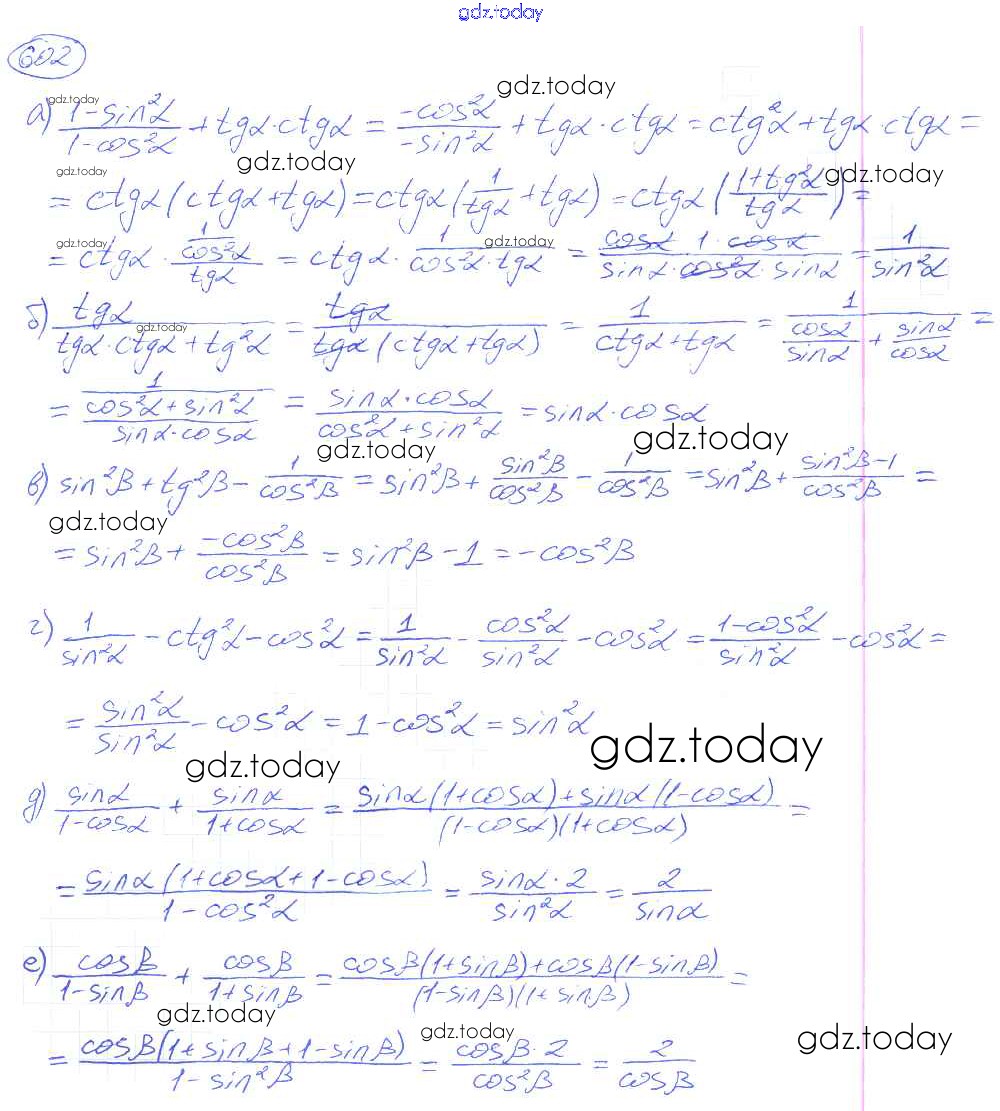 gdz.today
602
gdz.today
gdz.today
а) (1-sin²α)/(1-cos²α) + tgα·ctgα = (-cos²α)/(-sin²α) + tgα·ctgα = ctg²α + tgα·ctgα =
gdz.today gdz.today gdz.today
= ctgα(ctgα+tgα) = ctgα(1/tgα + tgα) = ctgα((1+tg²α)/tgα) =
gdz.today gdz.today
= ctgα · (1/cos²α)/tgα = ctgα · 1/(cos²α·tgα) = (cosα·1·cosα)/(sinα·cos²α·sinα) = 1/sin²α
gdz.today
б) tgα/(tgα·ctgα+tg²α) = tgα/(tgα(ctgα+tgα)) = 1/(ctgα+tgα) = 1/(cosα/sinα + sinα/cosα) =
= 1/((cos²α+sin²α)/(sinα·cosα)) = (sinα·cosα)/(cos²α+sin²α) = sinα·cosα
gdz.today gdz.today
в) sin²β + tg²β - 1/cos²β = sin²β + sin²β/cos²β - 1/cos²β = sin²β + (sin²β-1)/cos²β =
gdz.today
= sin²β + (-cos²β)/cos²β = sin²β - 1 = -cos²β
г) 1/sin²α - ctg²α - cos²α = 1/sin²α - cos²α/sin²α - cos²α = (1-cos²α)/sin²α - cos²α =
= sin²α/sin²α - cos²α = 1 - cos²α = sin²α
gdz.today
gdz.today
д) sinα/(1-cosα) + sinα/(1+cosα) = (sinα(1+cosα)+sinα(1-cosα))/((1-cosα)(1+cosα)) =
= (sinα(1+cosα+1-cosα))/(1-cos²α) = (sinα·2)/sin²α = 2/sinα
е) cosβ/(1-sinβ) + cosβ/(1+sinβ) = (cosβ(1+sinβ)+cosβ(1-sinβ))/((1-sinβ)(1+sinβ)) =
gdz.today gdz.today gdz.today
= (cosβ(1+sinβ+1-sinβ))/(1-sin²β) = (cosβ·2)/cos²β = 2/cosβ